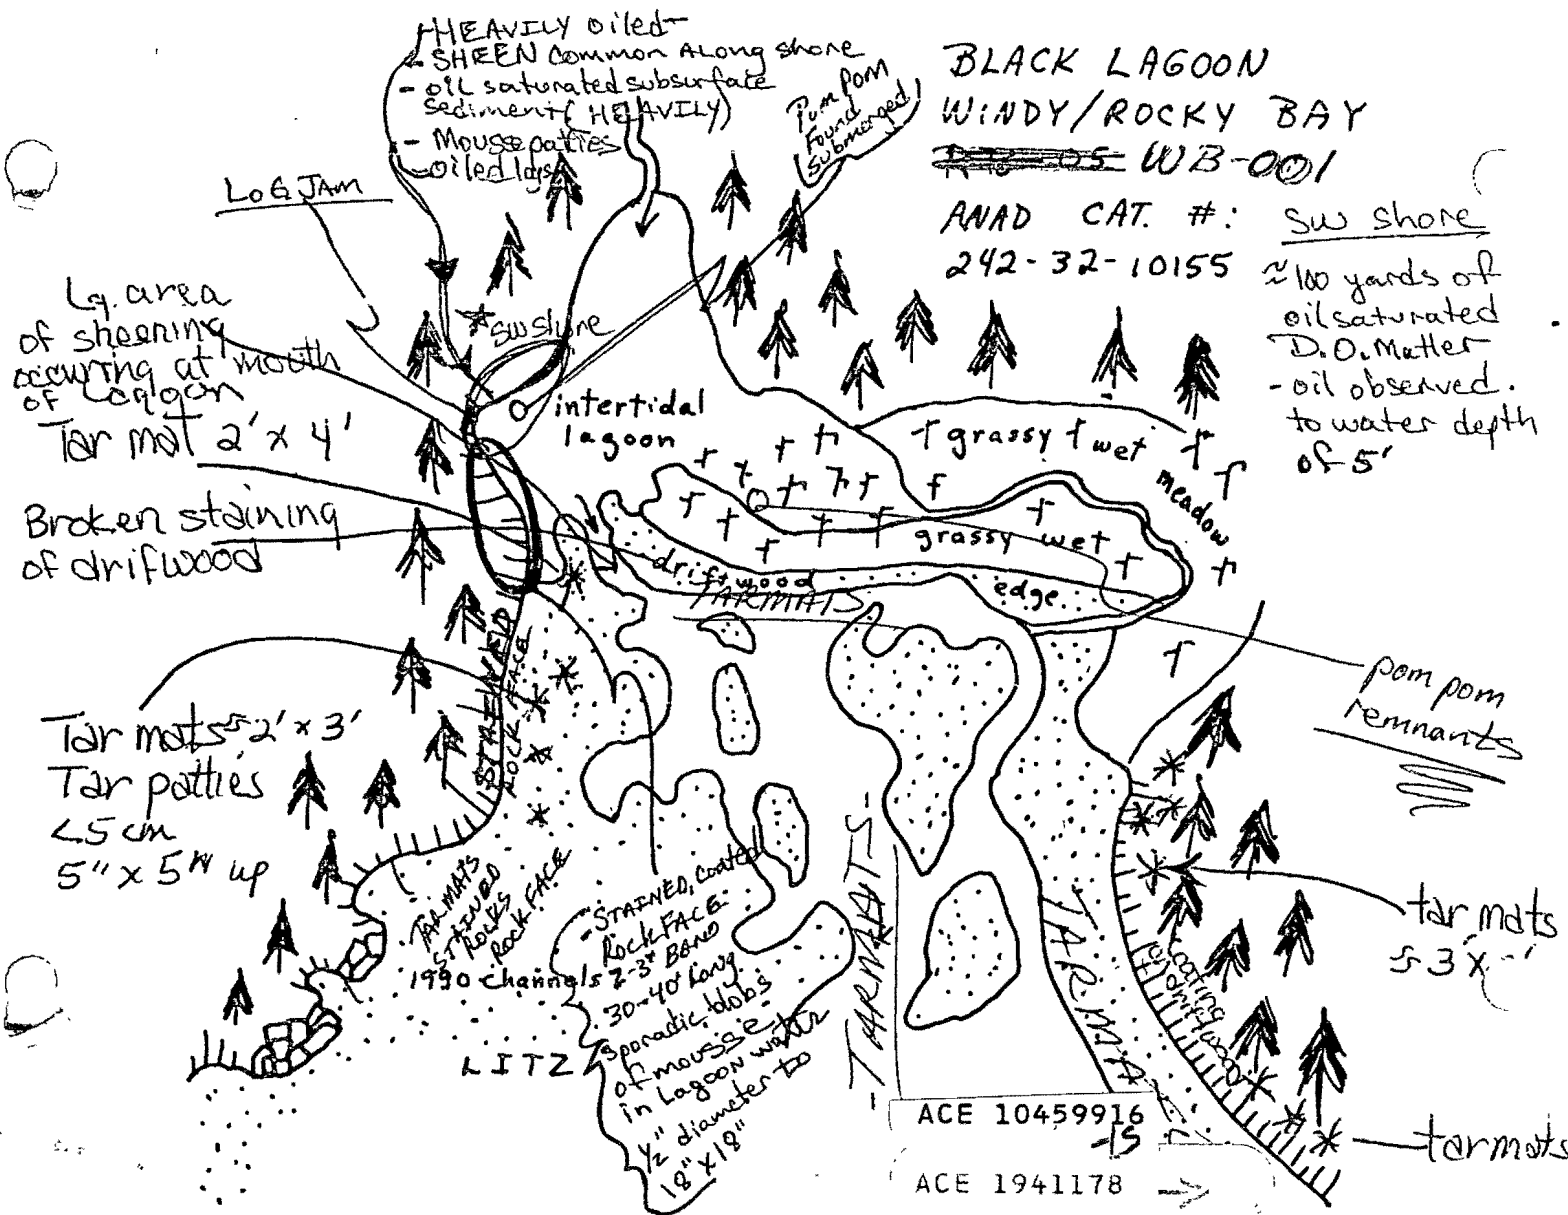 HEAVILY oiled-
- SHEEN Common Along shore
- oil saturated subsurface
sediment (HEAVILY)
- Mousse patties
- oiled logs
Pom pom
Found
Submerged
BLACK LAGOON
WINDY/ROCKY BAY
WB-001
ANAD CAT. #:
242-32-10155
SW shore
≈100 yards of
oil saturated
D.O. Matter
- oil observed.
to water depth
of 5'
LOG JAM
Lg. area
of sheening
occuring at mouth
of Lagoon
SW shore
Tar mat 2' x 4'
Broken staining
of drifwood
intertidal
lagoon
grassy wet
meadow
grassy wet
driftwood
edge
TARMATS
pom pom
remnants
STAINED
ROCK FACE
Tar mats ≈ 2' x 3'
Tar patties
<5 cm
5" x 5" up
TARMATS
STAINED
ROCKS
ROCK FACE
1990 channels
- STAINED, coated
Rock FACE
2-3' BAND
30-40' Long
sporadic blobs
of mousse
in Lagoon water
1/2" diameter to
18" x 18"
LITZ
- TARMATS -
TARMATS
coating
of driftwood
tar mats
≈ 3' x
tarmats
ACE 10459916
-15
ACE 1941178